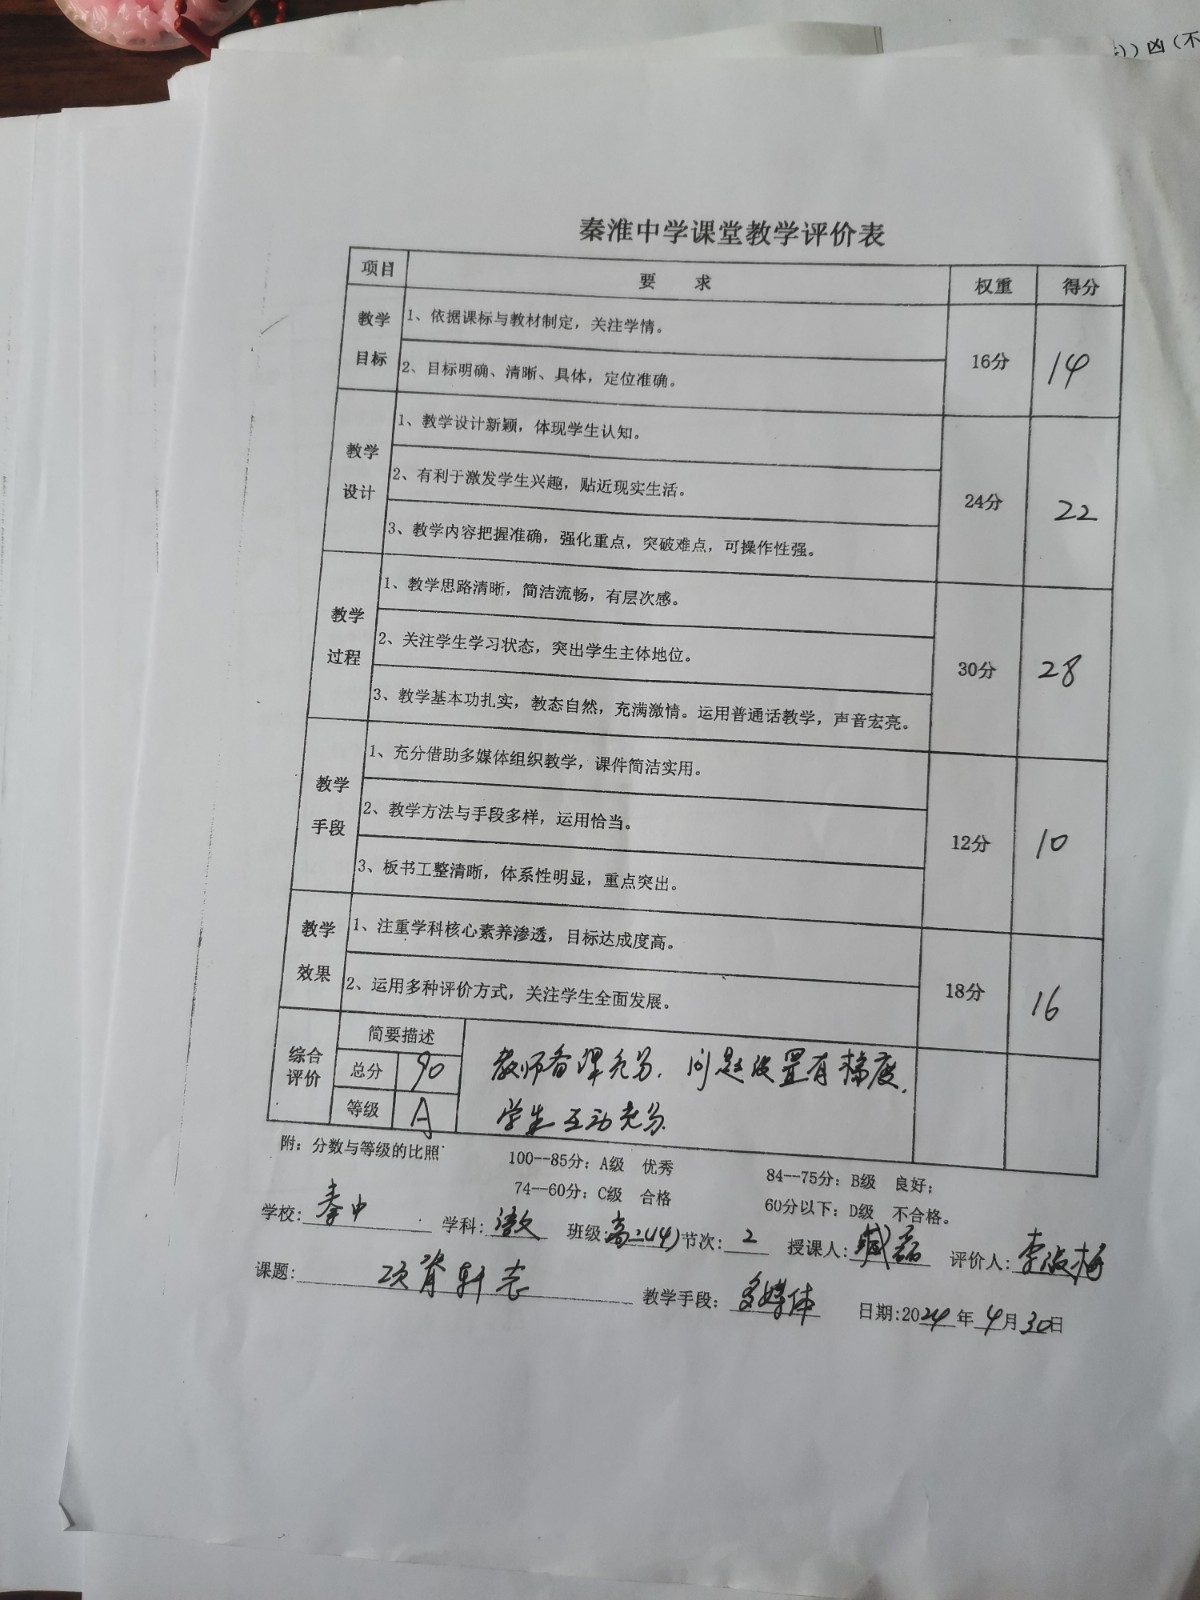 )）凶（不
秦淮中学课堂教学评价表
项目 要 求 权重 得分
教学目标 1、依据课标与教材制定，关注学情。 16分 14
2、目标明确、清晰、具体，定位准确。
教学设计 1、教学设计新颖，体现学生认知。 24分 22
2、有利于激发学生兴趣，贴近现实生活。
3、教学内容把握准确，强化重点，突破难点，可操作性强。
教学过程 1、教学思路清晰，简洁流畅，有层次感。 30分 28
2、关注学生学习状态，突出学生主体地位。
3、教学基本功扎实，教态自然，充满激情。运用普通话教学，声音宏亮。
教学手段 1、充分借助多媒体组织教学，课件简洁实用。 12分 10
2、教学方法与手段多样，运用恰当。
3、板书工整清晰，体系性明显，重点突出。
教学效果 1、注重学科核心素养渗透，目标达成度高。 18分 16
2、运用多种评价方式，关注学生全面发展。
综合评价 简要描述
总分 90 教师备课充分，问题设置有梯度，
等级 A 学生互动充分
附：分数与等级的比照 100--85分：A级 优秀 84--75分：B级 良好；
74--60分：C级 合格 60分以下：D级 不合格。
学校：秦中 学科：语文 班级：高二(14) 节次：2 授课人：臧磊 评价人：李淑梅
课题：项脊轩志 教学手段：多媒体 日期：2024年4月30日